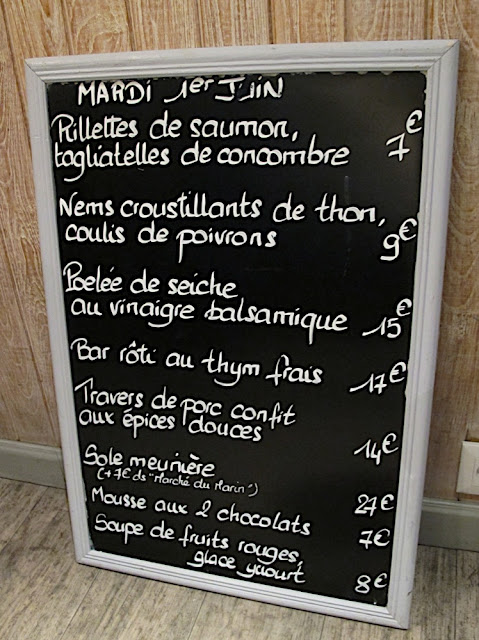 MARDI 1er JUIN
Rillettes de saumon,
tagliatelles de concombre 7€
Nems croustillants de thon,
coulis de poivrons 9€
Poelée de seiche
au vinaigre balsamique 15€
Bar rôti au thym frais 17€
Travers de porc confit
aux épices douces 14€
Sole meunière 27€
(+7€ ds "Marché du Marin")
Mousse aux 2 chocolats 7€
Soupe de fruits rouges,
glace yaourt 8€